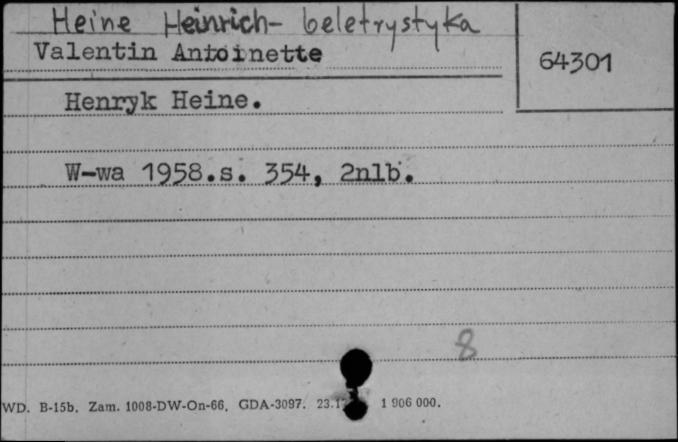 Heine Heinrich- beletrystyka
Valentin Antoinette
64301
Henryk Heine.
W-wa 1958.s. 354, 2nlb.
8
WD. B-15b. Zam. 1008-DW-On-66. GDA-3097. 1 906 000.